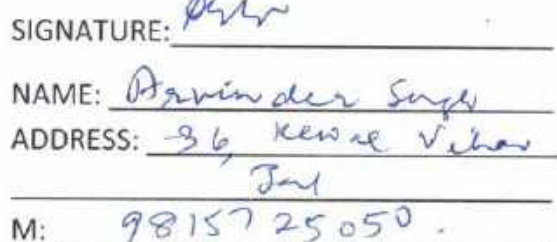 SIGNATURE:
NAME: Arvinder Singh
ADDRESS: 36, Kewal Vihar
Jal
M: 98157 25050.